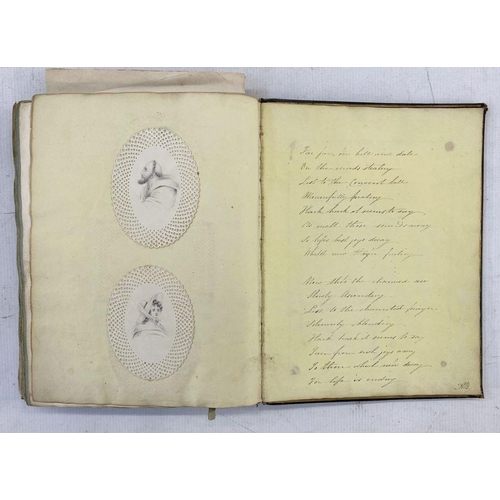 Far far o'er hill and dale
On the winds stealing
List to the Convent bell
Mournfully pealing
Hark hark it seems to say
As melt those sounds away
So lifes best joys decay
Whilst new their feeling

Now thro the charmed air
Slowly Ascending
List to the chaunted prayer
Solemnly blending
Hark hark it seems to say
Turn from such joys away
To those which ne'er decay
For life is ending